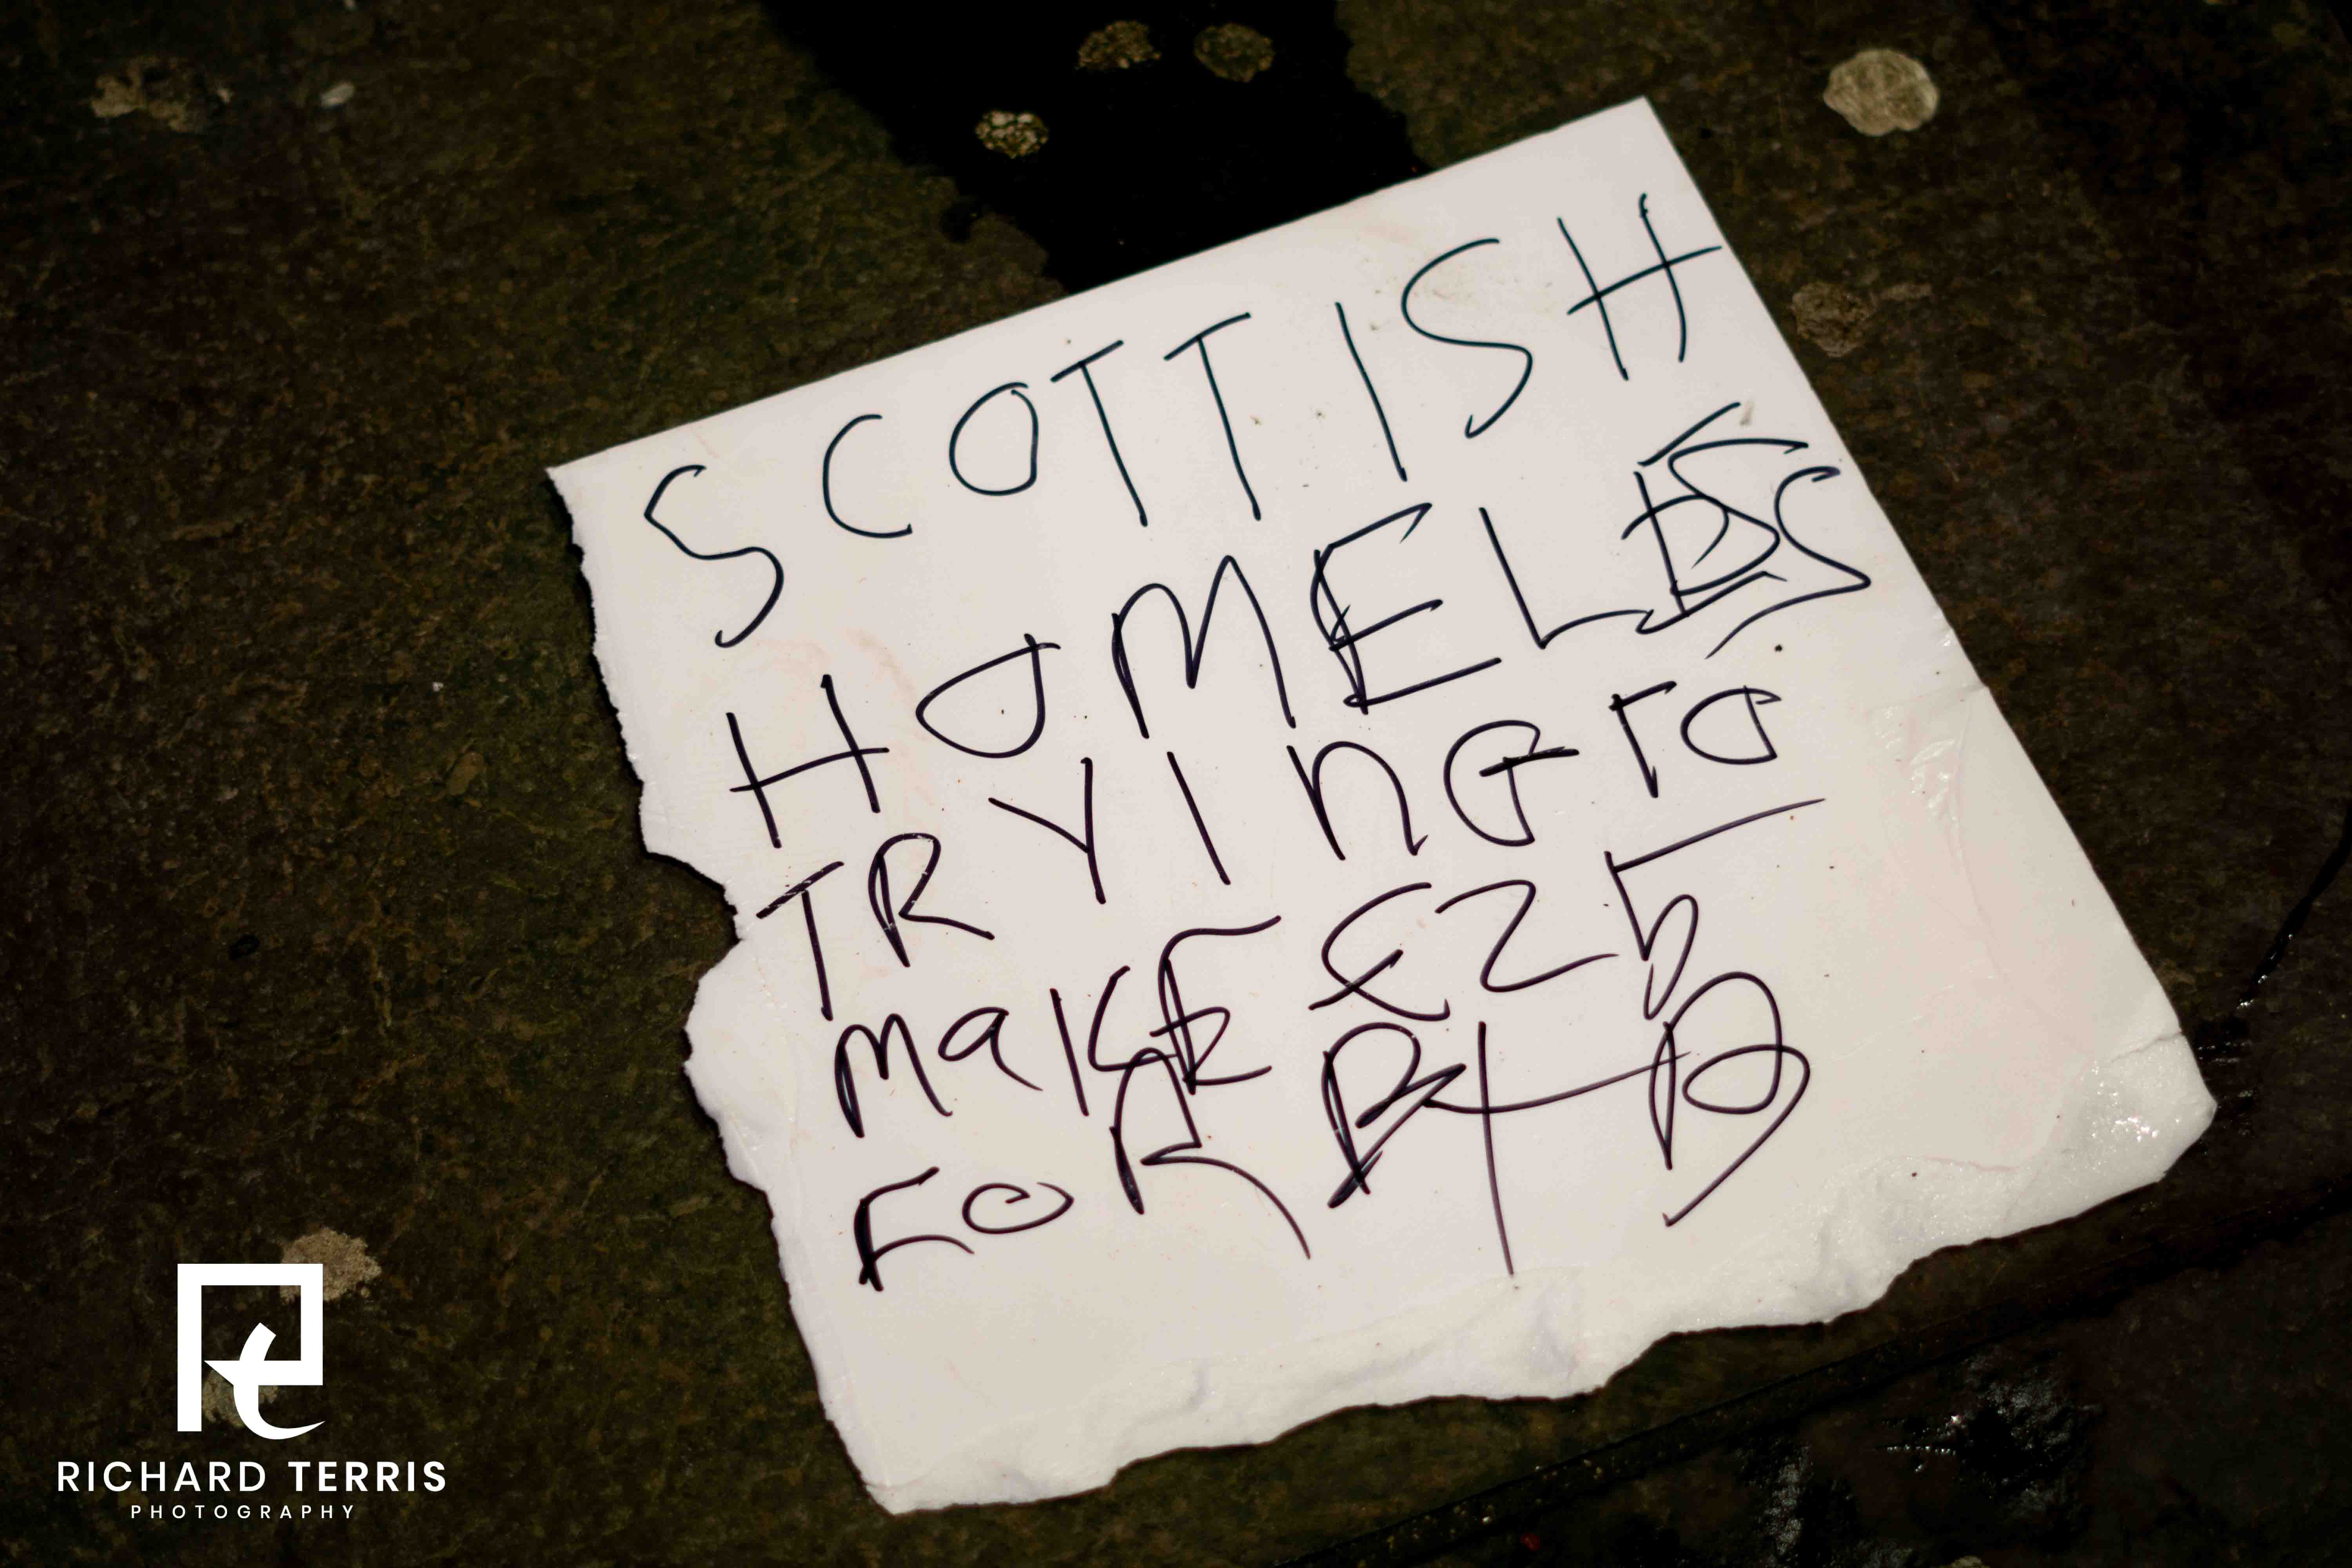 SCOTTISH
HOMELESS
TRYING TO
MAKE £25
FOR B+B
RICHARD TERRIS
PHOTOGRAPHY